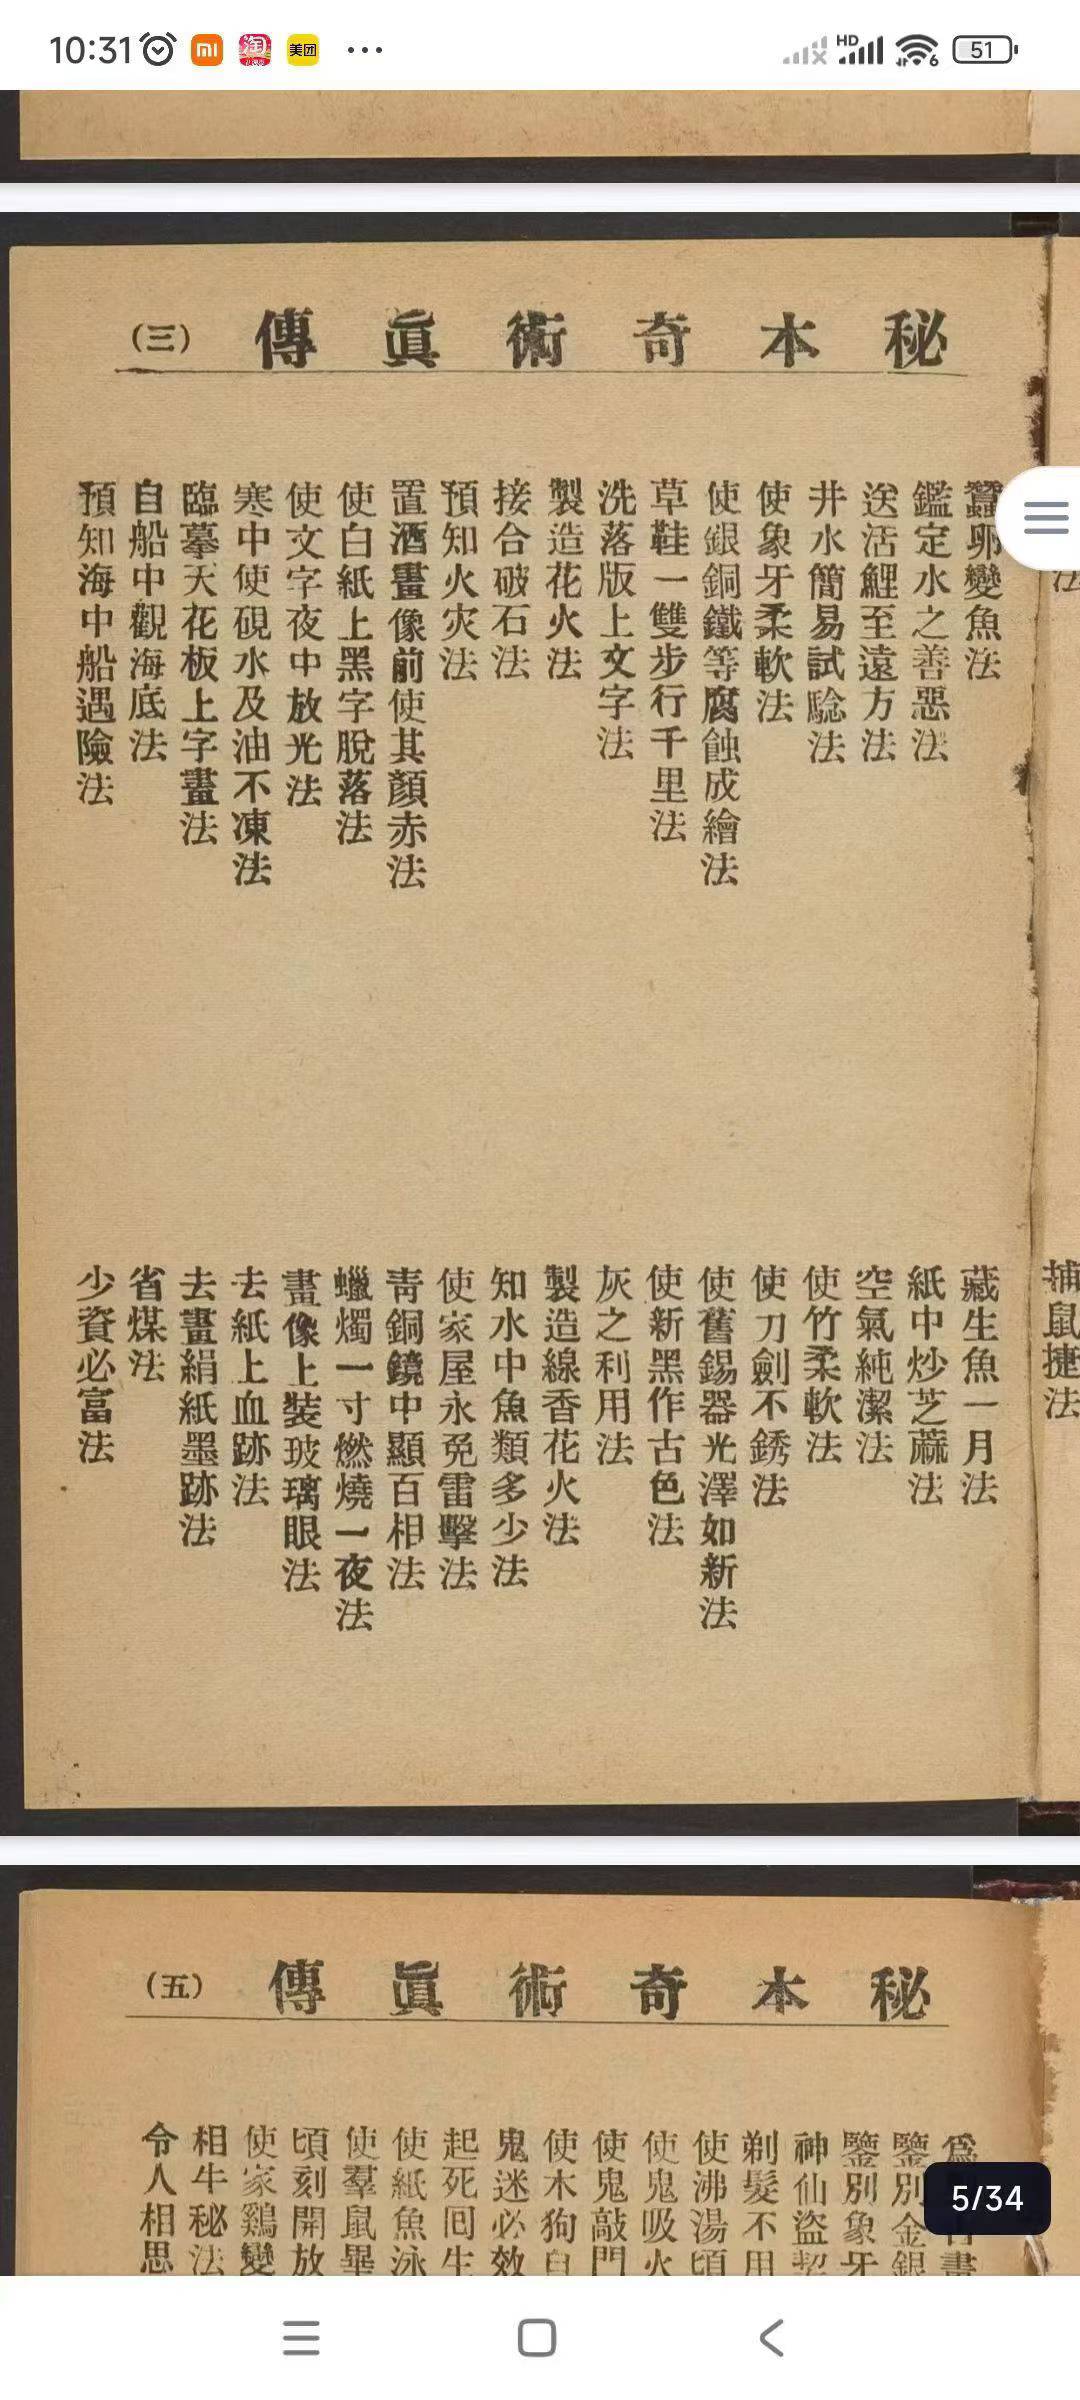 10:31
美团
HD
6
51
秘本奇術眞傳
(三)
蠶卵變魚法
鑑定水之善惡法
送活鯉至遠方法
井水簡易試驗法
使象牙柔軟法
使銀銅鐵等腐蝕成繪法
草鞋一雙步行千里法
洗落版上文字法
製造花火法
接合破石法
預知火灾法
置酒畫像前使其顏赤法
使白紙上黑字脫落法
使文字夜中放光法
寒中使硯水及油不凍法
臨摹天花板上字畫法
自船中觀海底法
預知海中船遇險法
法
捕鼠捷法
藏生魚一月法
紙中炒芝蔴法
空氣純潔法
使竹柔軟法
使刀劍不銹法
使舊錫器光澤如新法
使新黑作古色法
灰之利用法
製造線香花火法
知水中魚類多少法
使家屋永免雷擊法
靑銅鏡中顯百相法
蠟燭一寸燃燒一夜法
畫像上裝玻璃眼法
去紙上血跡法
去畫絹紙墨跡法
省煤法
少資必富法
秘本奇術眞傳
(五)
鑒別金銀
鑒別象牙
神仙盜
剃髮不用
使沸湯頃
使鬼吸火
使鬼敲門
使木狗自
鬼迷必效
起死回生
使紙魚泳
使羣鼠畢
頃刻開放
使家鷄變
相牛秘法
令人相思
5/34